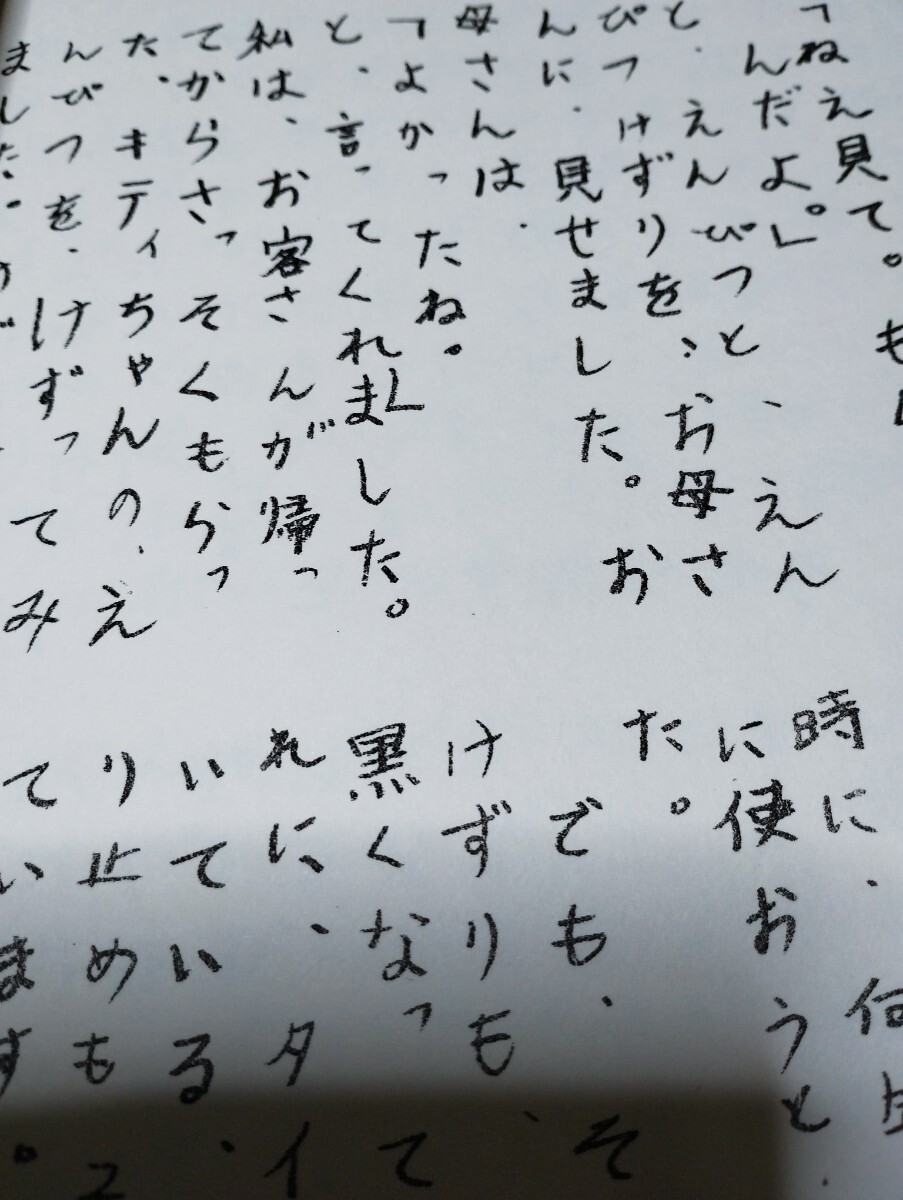 「ねえ見て。も
んだよ。」
と、えんぴつと、えん
ぴつけずりを、お母さ
んに、見せました。お
母さんは、
「よかったね。」
と、言ってくれました。
私は、お客さんが帰っ
てからさっそくもらっ
た、キティちゃんの、え
んぴつを、けずってみ
ました。
時に、何
に使おうと
た。
でも、そ
けずりも、
黒くなって
れに、タイ
いている、
り止めも
ています。